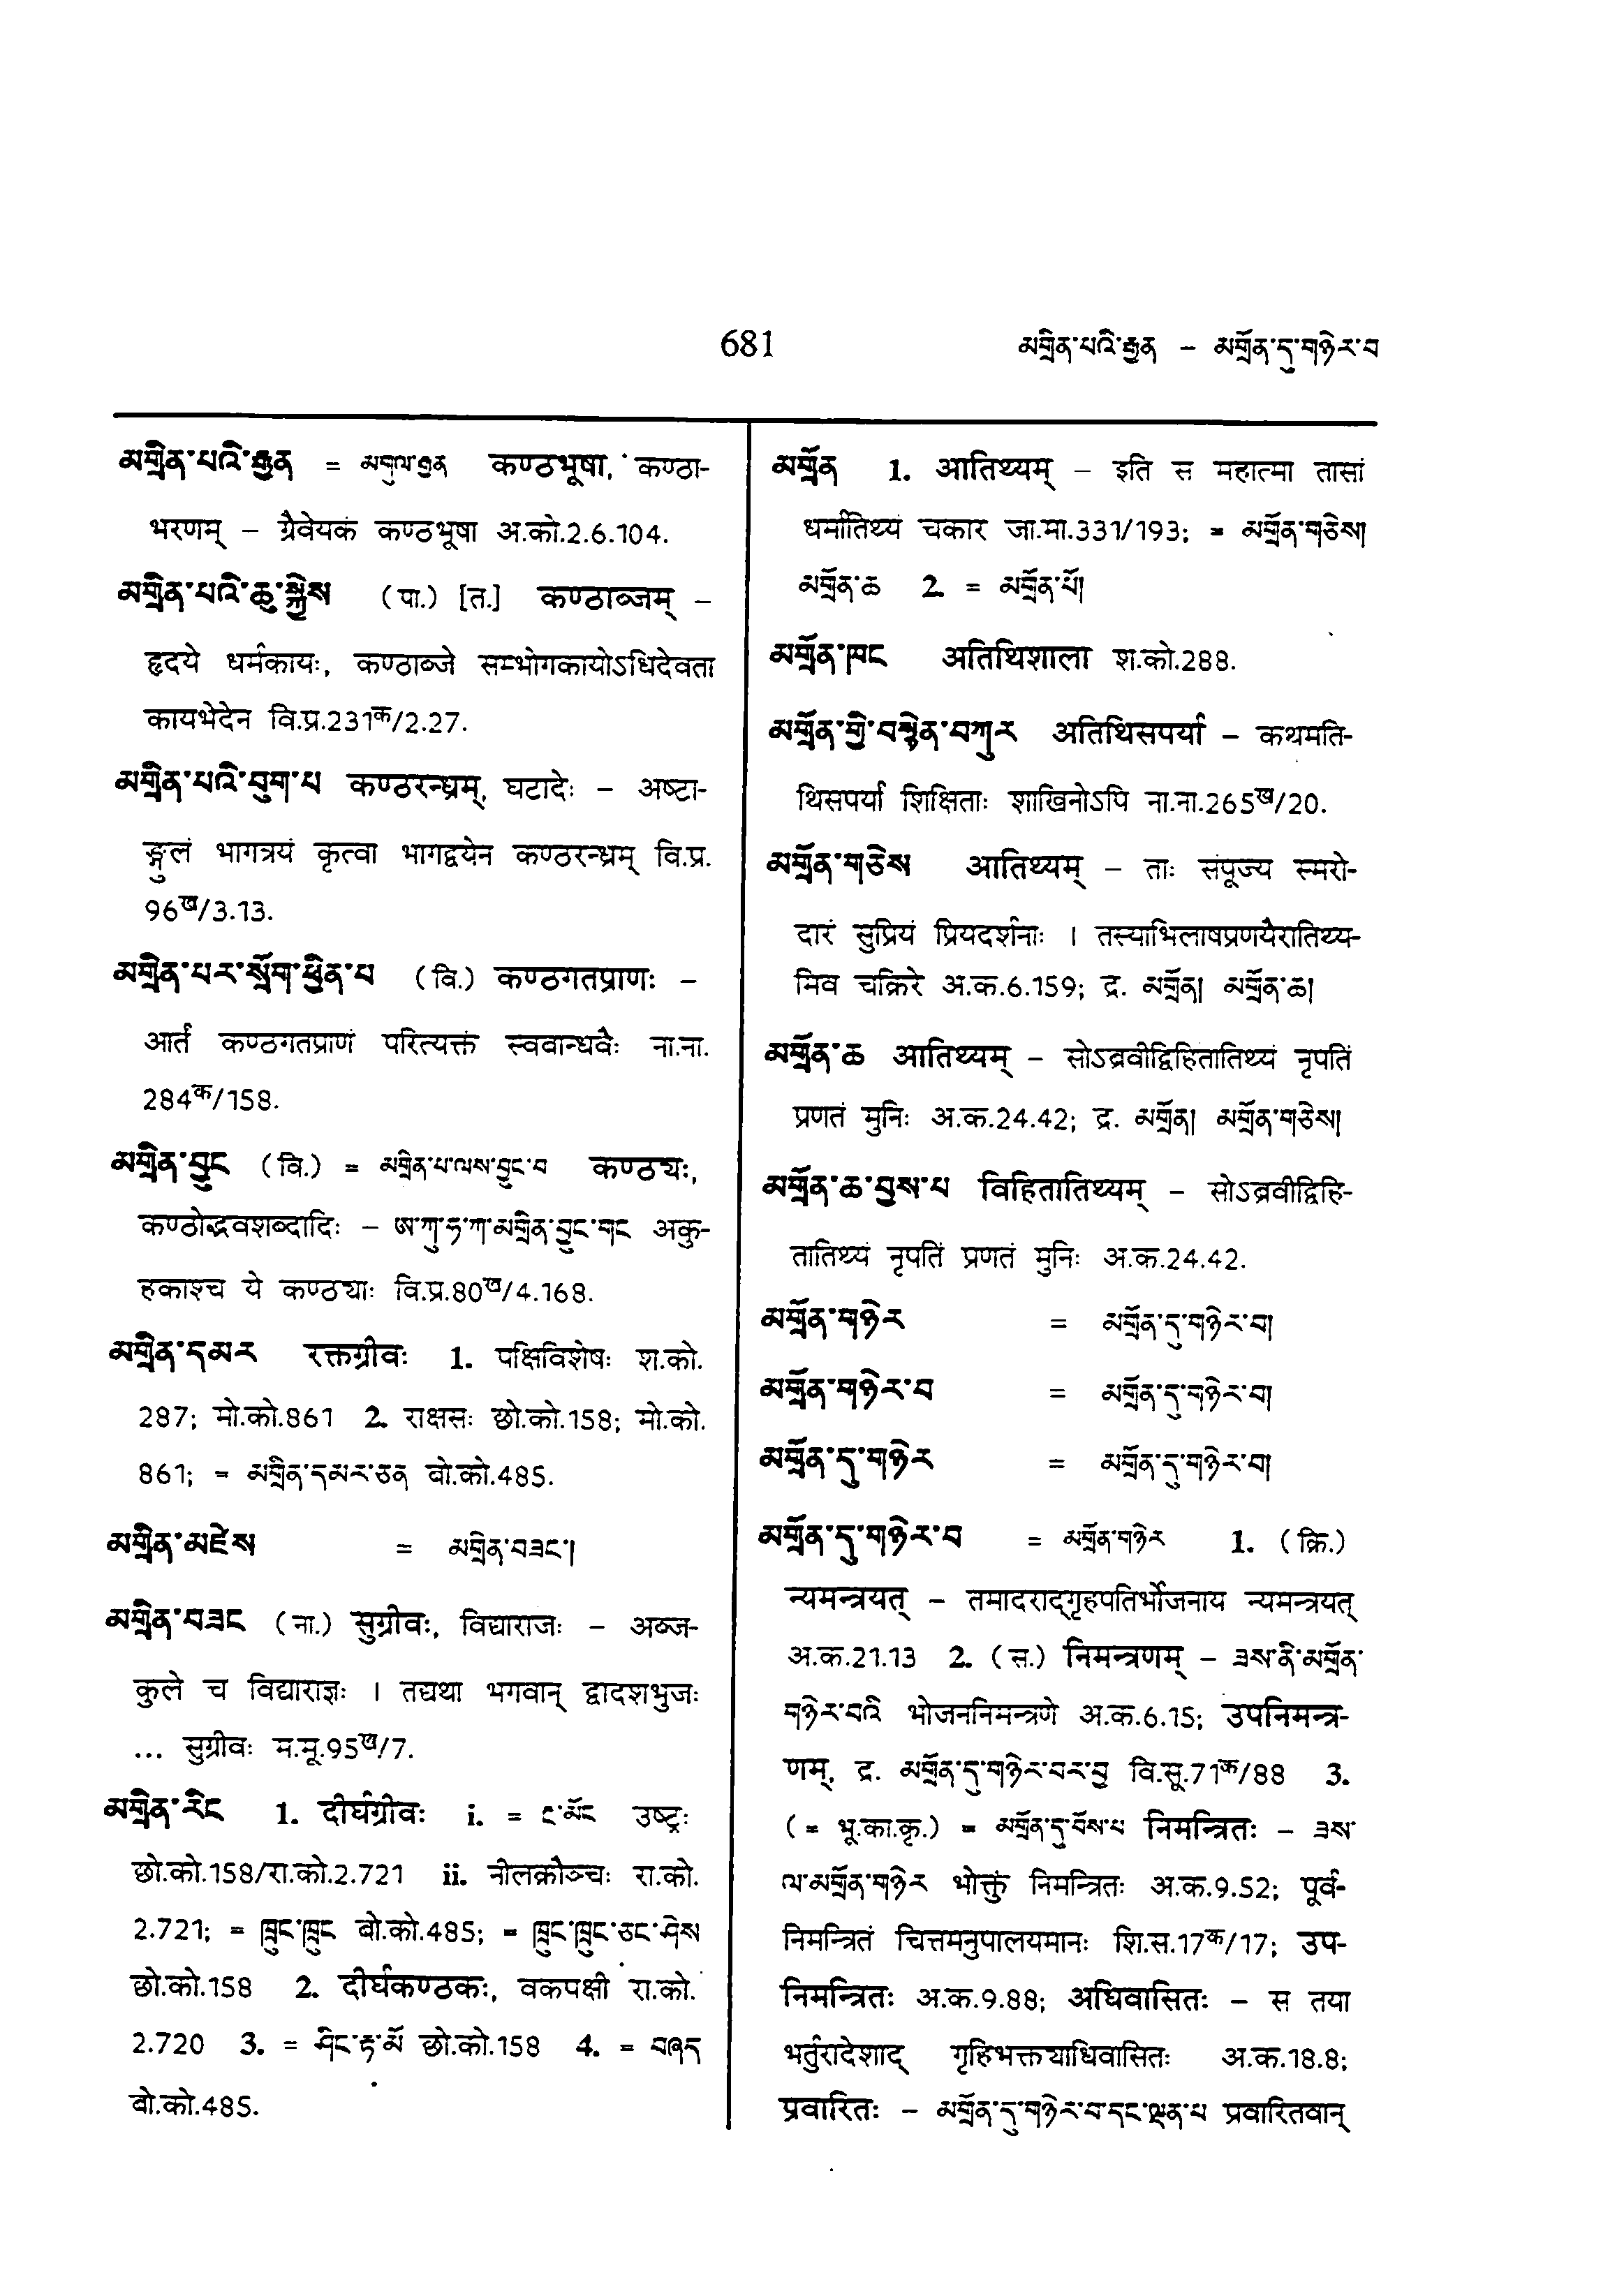 681
མགྲིན་པའི་རྒྱན – མགྲོན་དུ་གཉེར་བ
མགྲིན་པའི་རྒྱན = མགུལ་རྒྱན कण्ठभूषा, कण्ठा-
भरणम् – ग्रैवेयकं कण्ठभूषा अ.को.2.6.104.
མགྲིན་པའི་ཆུ་སྐྱེས (पा.) [त.] कण्ठाब्जम् –
हृदये धर्मकायः, कण्ठाब्जे सम्भोगकायोऽधिदेवता
कायभेदेन वि.प्र.231क/2.27.
མགྲིན་པའི་བུག་པ कण्ठरन्ध्रम्, घटादेः – अष्टा-
ङ्गुलं भागत्रयं कृत्वा भागद्वयेन कण्ठरन्ध्रम् वि.प्र.
96ख/3.13.
མགྲིན་པར་སྲོག་ཕྱིན་པ (वि.) कण्ठगतप्राणः –
आर्तं कण्ठगतप्राणं परित्यक्तं स्वबान्धवैः ना.ना.
284क/158.
མགྲིན་བྱུང (वि.) = མགྲིན་པ་ལས་བྱུང་བ कण्ठ्यः,
कण्ठोद्भवशब्दादिः – ཨ་ཀུ་ཧ་ཀ་མགྲིན་བྱུང་གང अकु-
हकाश्च ये कण्ठ्याः वि.प्र.80ख/4.168.
མགྲིན་དམར रक्तग्रीवः 1. पक्षिविशेषः श.को.
287; मो.को.861 2. राक्षसः छो.को.158; मो.को.
861; = མགྲིན་དམར་ཅན बो.को.485.
མགྲིན་མཛེས = མགྲིན་བཟང་།
མགྲིན་བཟང (ना.) सुग्रीवः, विद्याराजः – अब्ज-
कुले च विद्याराज्ञः । तद्यथा भगवान् द्वादशभुजः
... सुग्रीवः म.मू.95ख/7.
མགྲིན་རིང 1. दीर्घग्रीवः i. = ང་མོང उष्ट्रः
छो.को.158/रा.को.2.721 ii. नीलक्रौञ्चः रा.को.
2.721; = ཁྲུང་ཁྲུང बो.को.485; = ཁྲུང་ཁྲུང་ཅང་ཤེས
छो.को.158 2. दीर्घकण्ठकः, बकपक्षी रा.को.
2.720 3. = ཤིང་རྟ་མོ छो.को.158 4. = བཞད
बो.को.485.
མགྲོན 1. आतिथ्यम् – इति स महात्मा तासां
धर्मातिथ्यं चकार जा.मा.331/193; = མགྲོན་གཅེས།
མགྲོན་ཆ 2. = མགྲོན་པོ།
མགྲོན་ཁང अतिथिशाला श.को.288.
མགྲོན་གྱི་བསྙེན་བཀུར अतिथिसपर्या – कथमति-
थिसपर्या शिक्षिताः शाखिनोऽपि ना.ना.265ख/20.
མགྲོན་གཅེས आतिथ्यम् – ताः संपूज्य स्मरो-
दारं सुप्रियं प्रियदर्शनाः । तस्याभिलाषप्रणयैरातिथ्य-
मिव चक्रिरे अ.क.6.159; द्र. མགྲོན། མགྲོན་ཆ།
མགྲོན་ཆ आतिथ्यम् – सोऽब्रवीद्विहितातिथ्यं नृपतिं
प्रणतं मुनिः अ.क.24.42; द्र. མགྲོན། མགྲོན་གཅེས།
མགྲོན་ཆ་བྱས་པ विहितातिथ्यम् – सोऽब्रवीद्विहि-
तातिथ्यं नृपतिं प्रणतं मुनिः अ.क.24.42.
མགྲོན་གཉེར = མགྲོན་དུ་གཉེར་བ།
མགྲོན་གཉེར་བ = མགྲོན་དུ་གཉེར་བ།
མགྲོན་དུ་གཉེར = མགྲོན་དུ་གཉེར་བ།
མགྲོན་དུ་གཉེར་བ = མགྲོན་གཉེར 1. (क्रि.)
न्यमन्त्रयत् – तमादराद्गृहपतिर्भोजनाय न्यमन्त्रयत्
अ.क.21.13 2. (स.) निमन्त्रणम् – ཟས་ནི་མགྲོན་
གཉེར་བའི भोजननिमन्त्रणे अ.क.6.15; उपनिमन्त्र-
णम्, द्र. མགྲོན་དུ་གཉེར་བར་བྱ वि.सू.71क/88 3.
(= भू.का.कृ.) = མགྲོན་དུ་བོས་པ निमन्त्रितः – ཟས་
ལ་མགྲོན་གཉེར भोक्तुं निमन्त्रितः अ.क.9.52; पूर्व-
निमन्त्रितं चित्तमनुपालयमानः शि.स.17क/17; उप-
निमन्त्रितः अ.क.9.88; अधिवासितः – स तया
भर्तुरादेशाद् गृहिभक्त्याधिवासितः अ.क.18.8;
प्रवारितः – མགྲོན་དུ་གཉེར་བ་དང་ལྡན་པ प्रवारितवान्